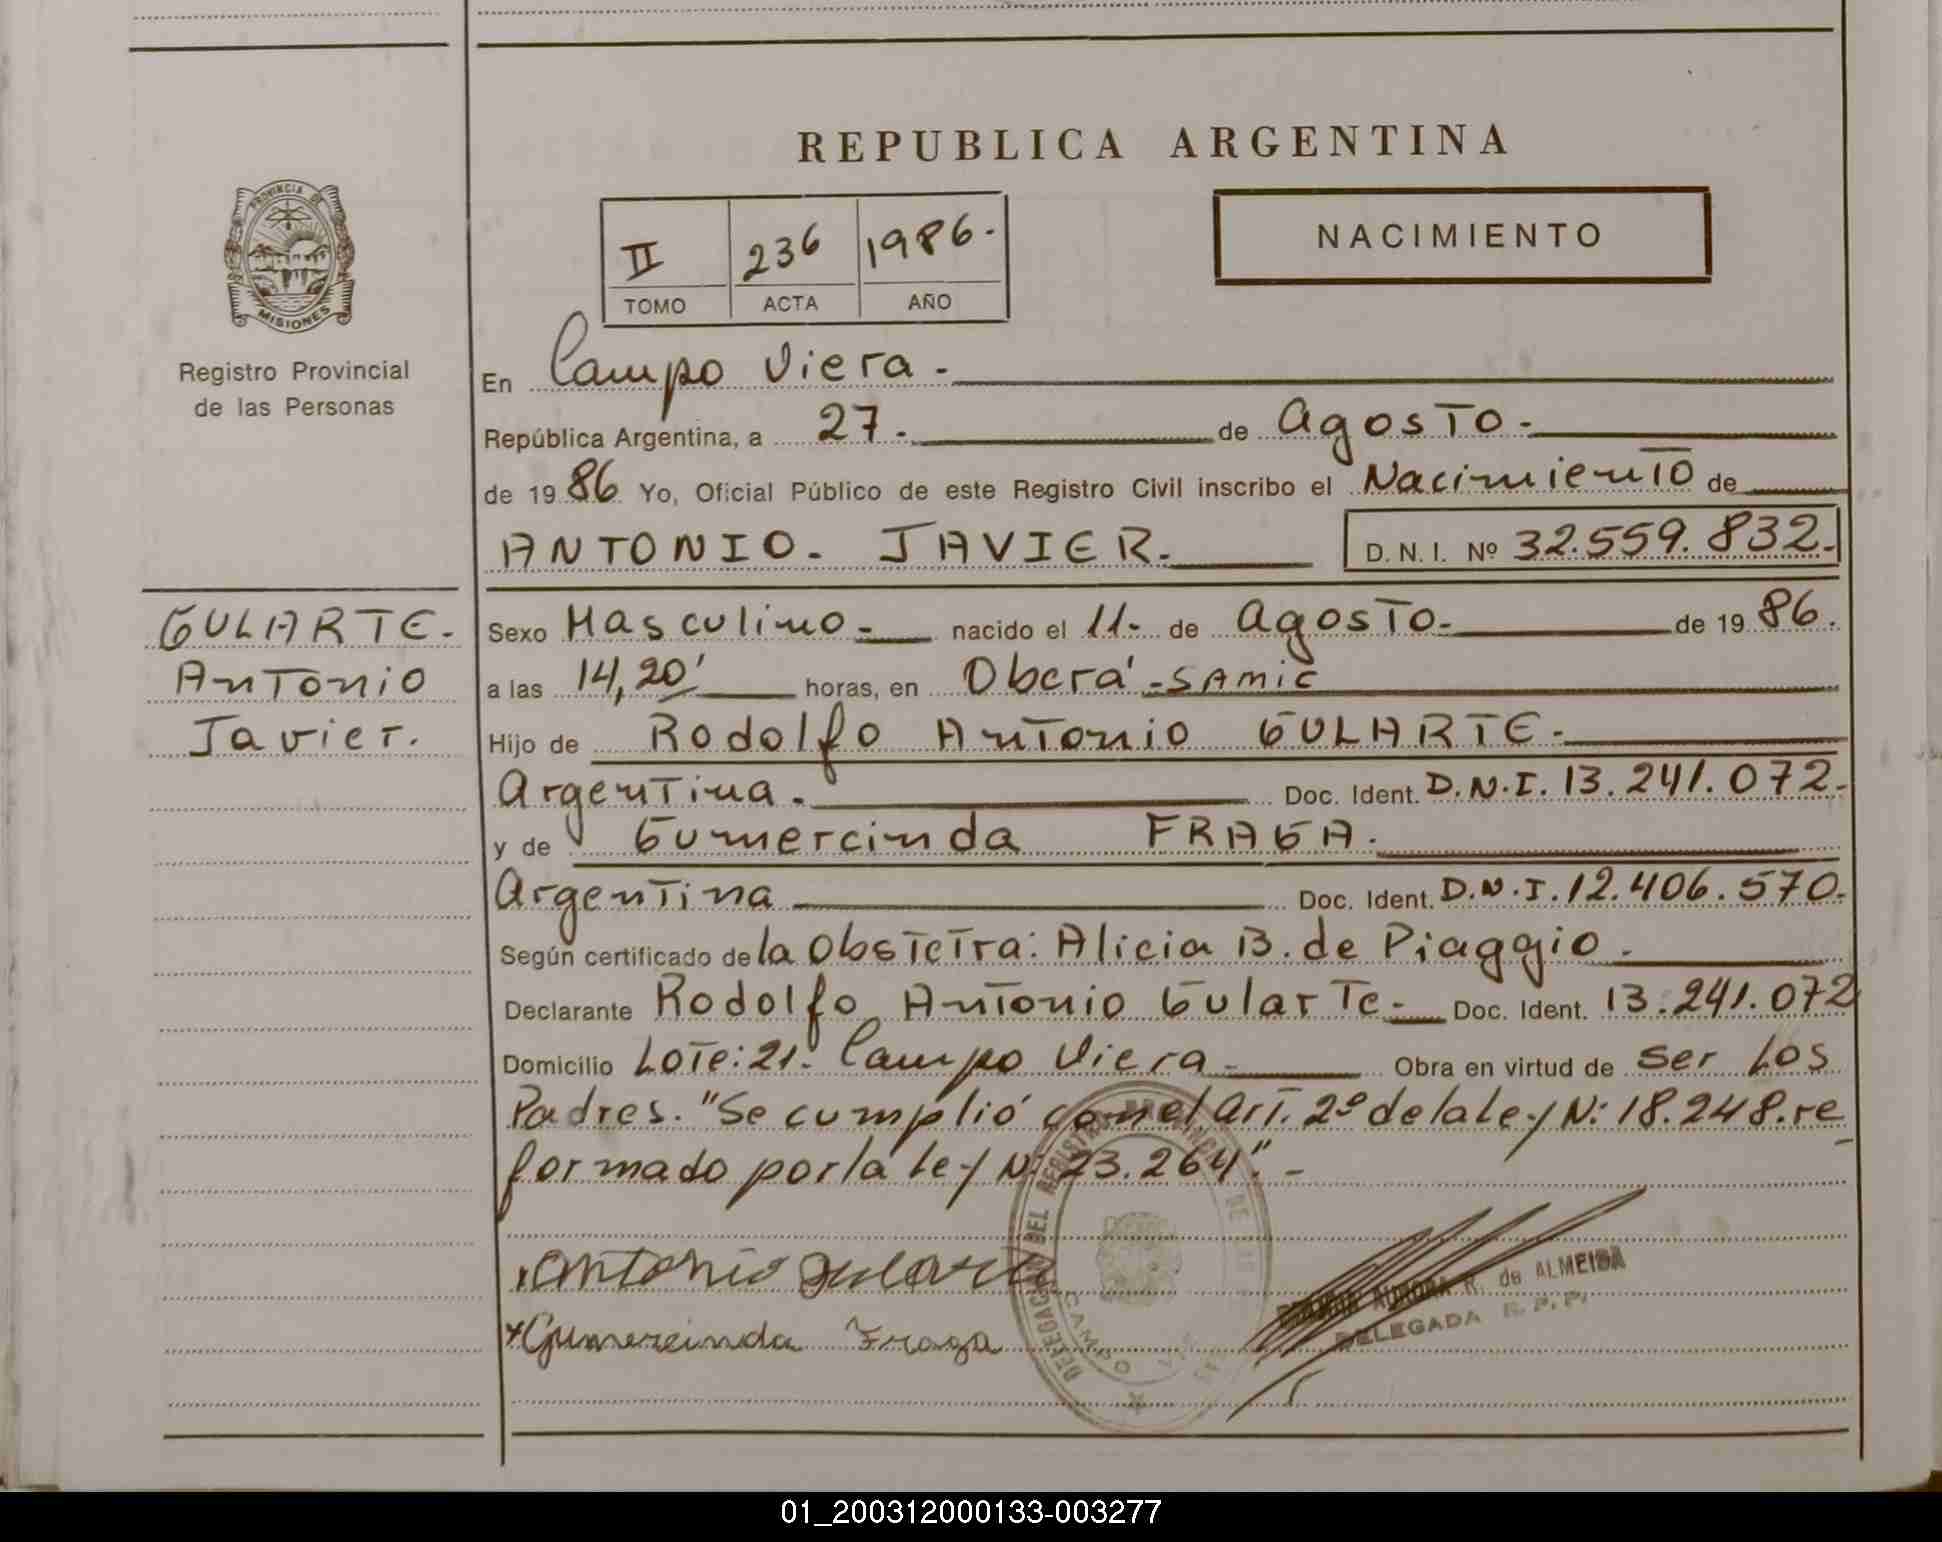 REPUBLICA ARGENTINA
PROVINCIA DE
MISIONES
Registro Provincial
de las Personas
II 236 1986.-
TOMO ACTA AÑO
NACIMIENTO
En Campo Viera.-
República Argentina, a 27.- de Agosto.-
de 19 86. Yo, Oficial Público de este Registro Civil inscribo el Nacimiento de
ANTONIO. JAVIER.
D. N. I. Nº 32.559.832.-
GULARTE.-
Antonio
Javier.
Sexo Masculino.- nacido el 11.- de Agosto.- de 19 86.
a las 14,20' horas, en Oberá.-SAMIC
Hijo de Rodolfo Antonio GULARTE.-
Argentina.- Doc. Ident. D.N.I. 13.241.072.-
y de Gumercinda FRAGA.
Argentina Doc. Ident. D.N.I. 12.406.570.-
Según certificado de la Obstetra: Alicia B. de Piaggio.
Declarante Rodolfo Antonio Gularte.- Doc. Ident. 13.241.072
Domicilio Lote: 21. Campo Viera.- Obra en virtud de ser Los
Padres. "Se cumplió con el Art. 2º de la Ley N: 18.248. re
formado por la Ley N: 23.264".-
Antonio Gularte
Gumercinda Fraga
DELEGACION DEL REGISTRO PROVINCIAL DE LAS
CAMPO VIERA
AURORA R. de ALMEIDA
DELEGADA R.P.P.
01_200312000133-003277